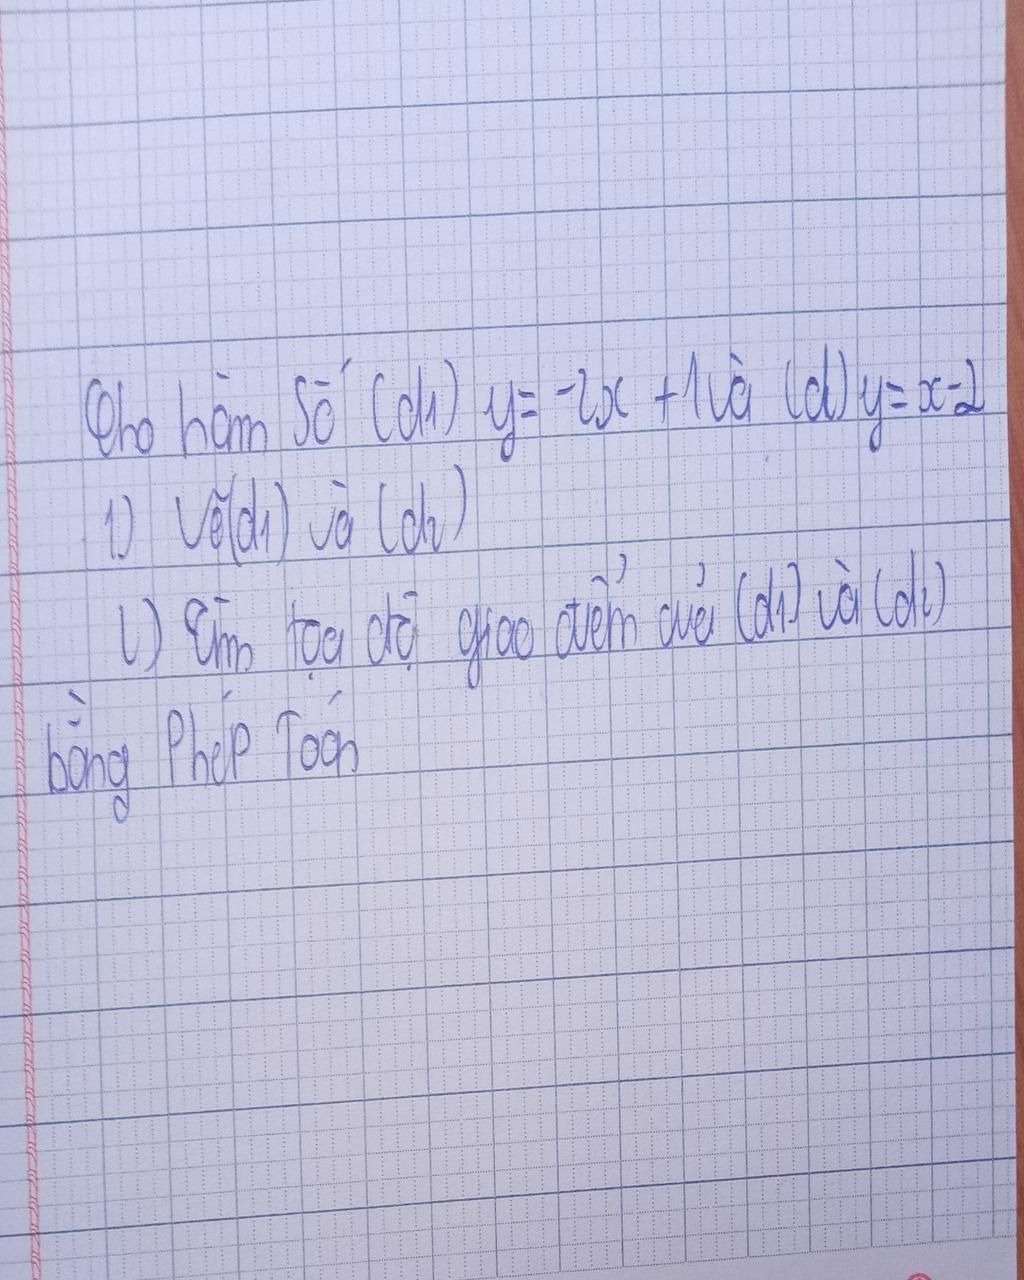 Cho hàm số (d1) y= -2x +1 và (d) y= x-2
1) Vẽ (d1) và (d2)
2) Tìm tọa độ giao điểm của (d1) và (d2)
bằng Phép Toán